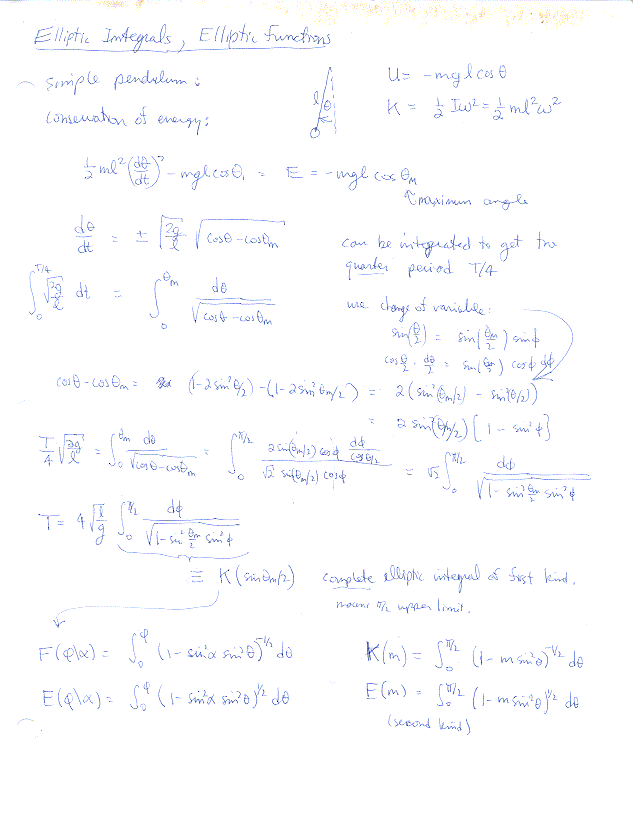 Elliptic Integrals, Elliptic Functions
simple pendulum:
l θ
U = -mgl cosθ
K = 1/2 Iω² = 1/2 ml²ω²
Conservation of energy:
1/2 ml² (dθ/dt)² - mgl cosθ, = E = -mgl cosθm
↑ maximum angle
dθ/dt = ± √(2g/l) √(cosθ - cosθm)
can be integrated to get the
quarter period T/4
∫₀^{T/4} √(2g/l) dt = ∫₀^{θm} dθ/√(cosθ - cosθm)
use change of variable:
sin(θ/2) = sin(θm/2) sinφ
cos θ/2 · dθ/2 = sin(θm/2) cosφ dφ
cosθ - cosθm = (1-2sin²θ/2) - (1-2sin²θm/2) = 2(sin²(θm/2) - sin²(θ/2))
= 2 sin²(θm/2) [1 - sin²φ]
T/4 √(2g/l) = ∫₀^{θm} dθ/√(cosθ-cosθm) = ∫₀^{π/2} 2 sin(θm/2) cosφ dφ/cosθ/2 / √2 sin(θm/2) cosφ = √2 ∫₀^{π/2} dφ/√(1 - sin²θm/2 sin²φ)
T = 4 √(l/g) ∫₀^{π/2} dφ/√(1 - sin²θm/2 sin²φ)
≡ K(sinθm/2) complete elliptic integral of first kind.
means π/2 upper limit.
F(φ\α) = ∫₀^φ (1 - sin²α sin²θ)^{-1/2} dθ
K(m) = ∫₀^{π/2} (1 - m sin²θ)^{-1/2} dθ
E(φ\α) = ∫₀^φ (1 - sin²α sin²θ)^{1/2} dθ
E(m) = ∫₀^{π/2} (1 - m sin²θ)^{1/2} dθ
(second kind)